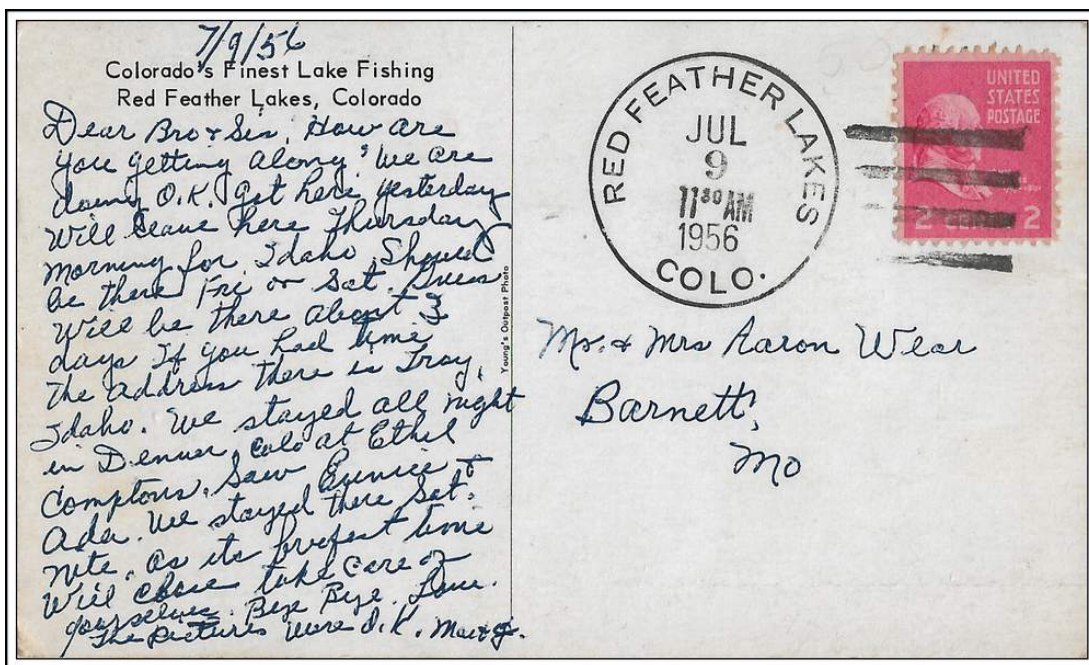 7/9/56
Colorado's Finest Lake Fishing
Red Feather Lakes, Colorado
Dear Bro & Sis, How are
you getting along? We are
doing O.K. Got here yesterday
Will leave here Thursday
morning for Idaho. Should
be there Fri or Sat. Guess
will be there about 3
days If you had time
the address there is Troy,
Idaho. We stayed all night
in Denver, Colo at Ethel
Comptons. Saw Eunice &
Ada. We stayed there Sat.
nite. As its brekfest time
Will close take care of
yourselves. Bye Bye. Love.
The pictures were O.K.
Young's Outpost Photo
RED FEATHER LAKES
JUL
9
11 30 AM
1956
COLO.
UNITED
STATES
POSTAGE
2 2
Mr. & Mrs Aaron Wear
Barnett,
Mo